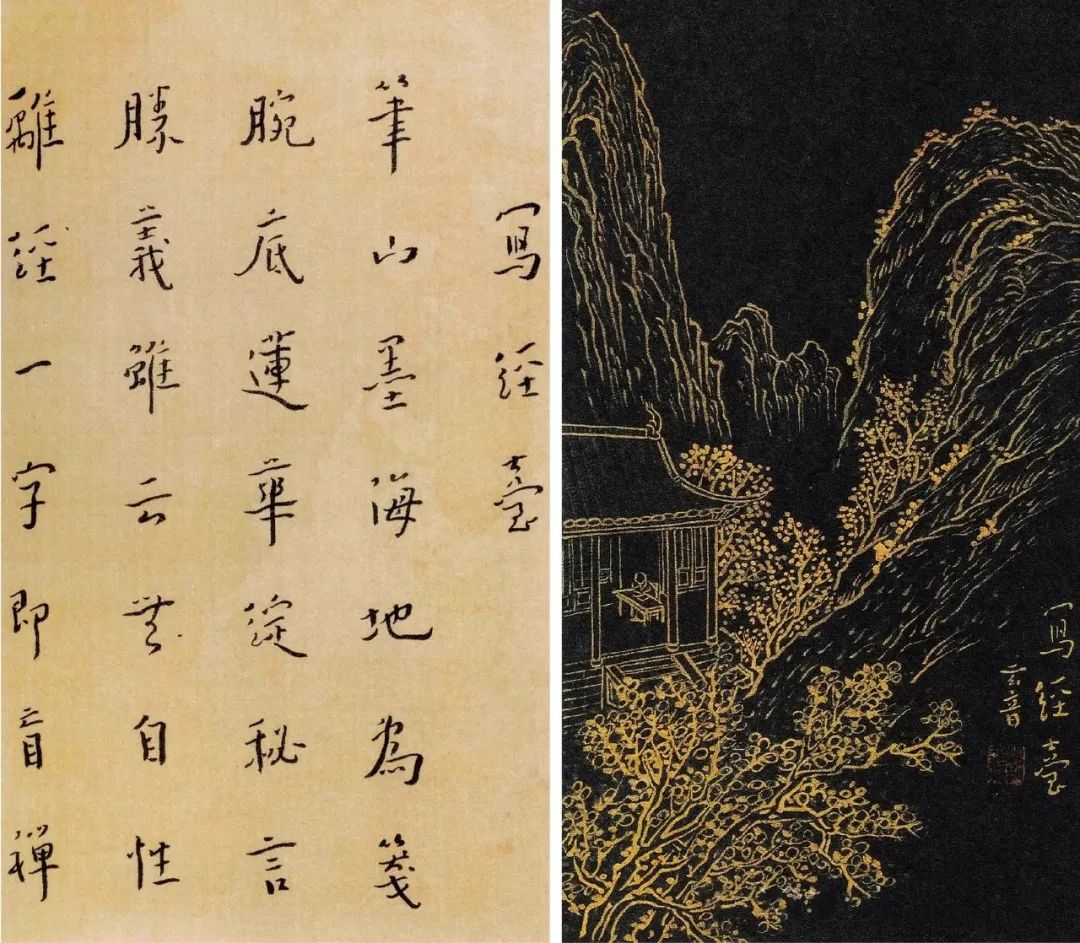 寫經臺
筆山墨海地為箋
腕底蓮華綻秘言
勝義雖云無自性
離經一字即盲禪
寫經臺